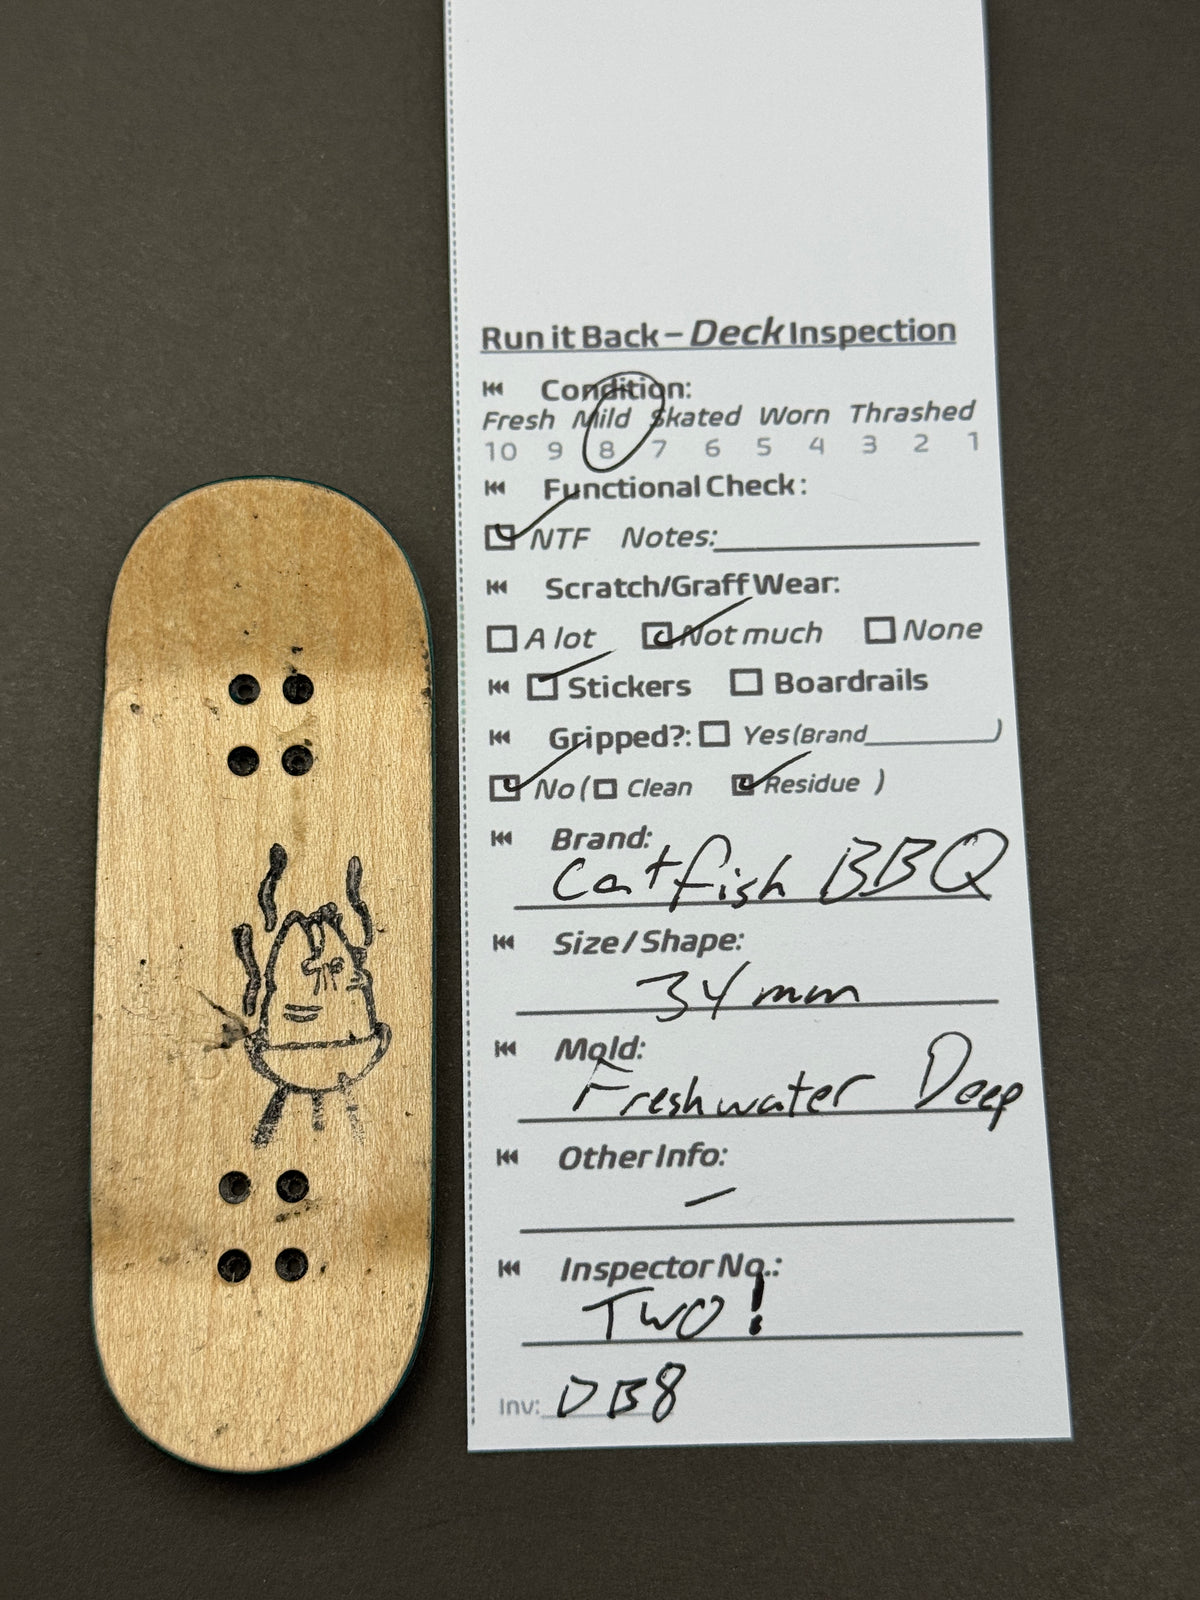 Run it Back – Deck Inspection
Condition:
Fresh Mild Skated Worn Thrashed
10 9 8 7 6 5 4 3 2 1
Functional Check:
NTF Notes:
Scratch/Graff Wear:
A lot Not much None
Stickers Boardrails
Gripped?: Yes (Brand )
No ( Clean Residue )
Brand:
Catfish BBQ
Size / Shape:
34mm
Mold:
Freshwater Deep
Other Info:
–
Inspector No.:
TWO!
Inv: DB8